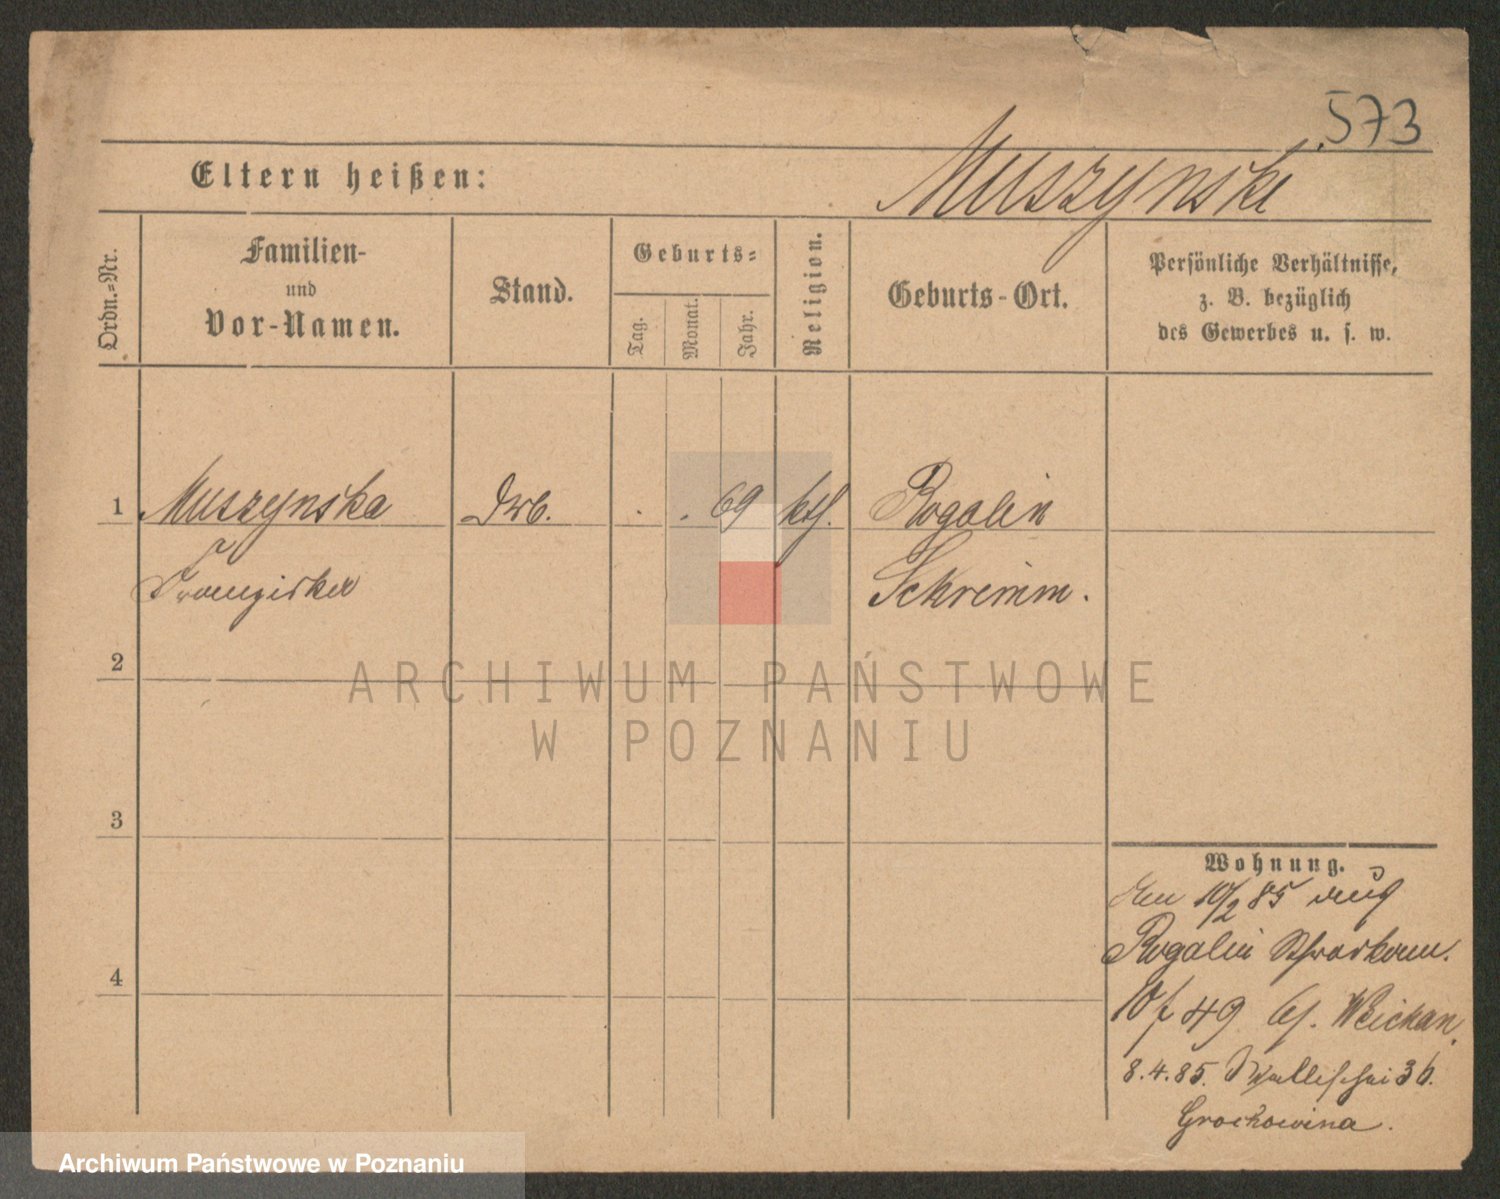 573
Eltern heißen: Muszynski
Ordn.=Nr.
Familien-
und
Vor-Namen.
Stand.
Geburts=
Tag.
Monat.
Jahr.
Religion.
Geburts-Ort.
Persönliche Verhältnisse,
z. B. bezüglich
des Gewerbes u. s. w.
1 Muszynska . . 69 kth. Rogalin
Franziska Schrimm.
2
ARCHIWUM PAŃSTWOWE
W POZNANIU
3
Wohnung.
10/2 85 auf
Rogalin
4
49
8.4.85. Wallischei 36.
Grochowina.
Archiwum Państwowe w Poznaniu